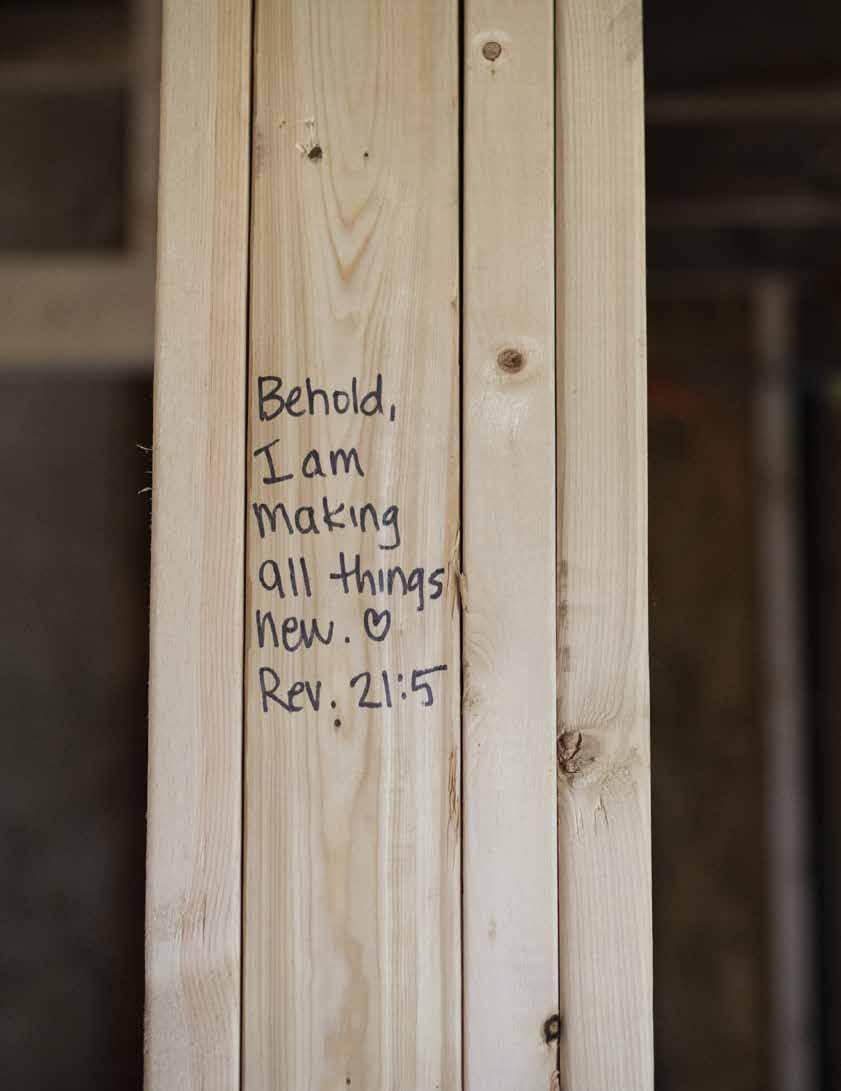 Behold,
I am
making
all things
new. ♡
Rev. 21:5